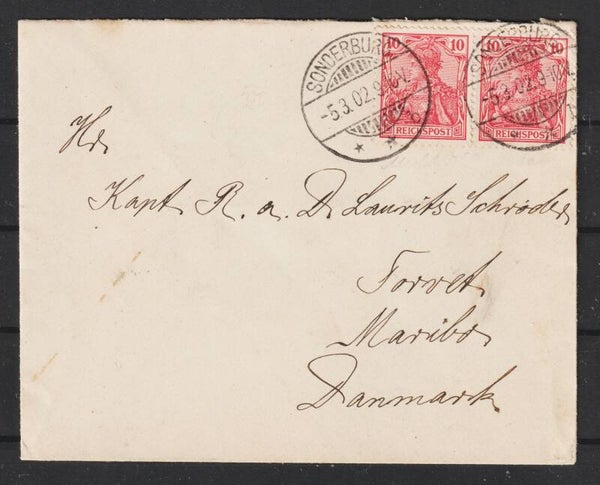 10 10
REICHSPOST
10 10
REICHSPOST
SONDERBURG
-5.3.02.9-10V.
SONDERBURG
-5.3.02.9-10V.
Hr.
Kapt. R. a. D. Laurits Schrøder
Torvet
Maribo
Danmark